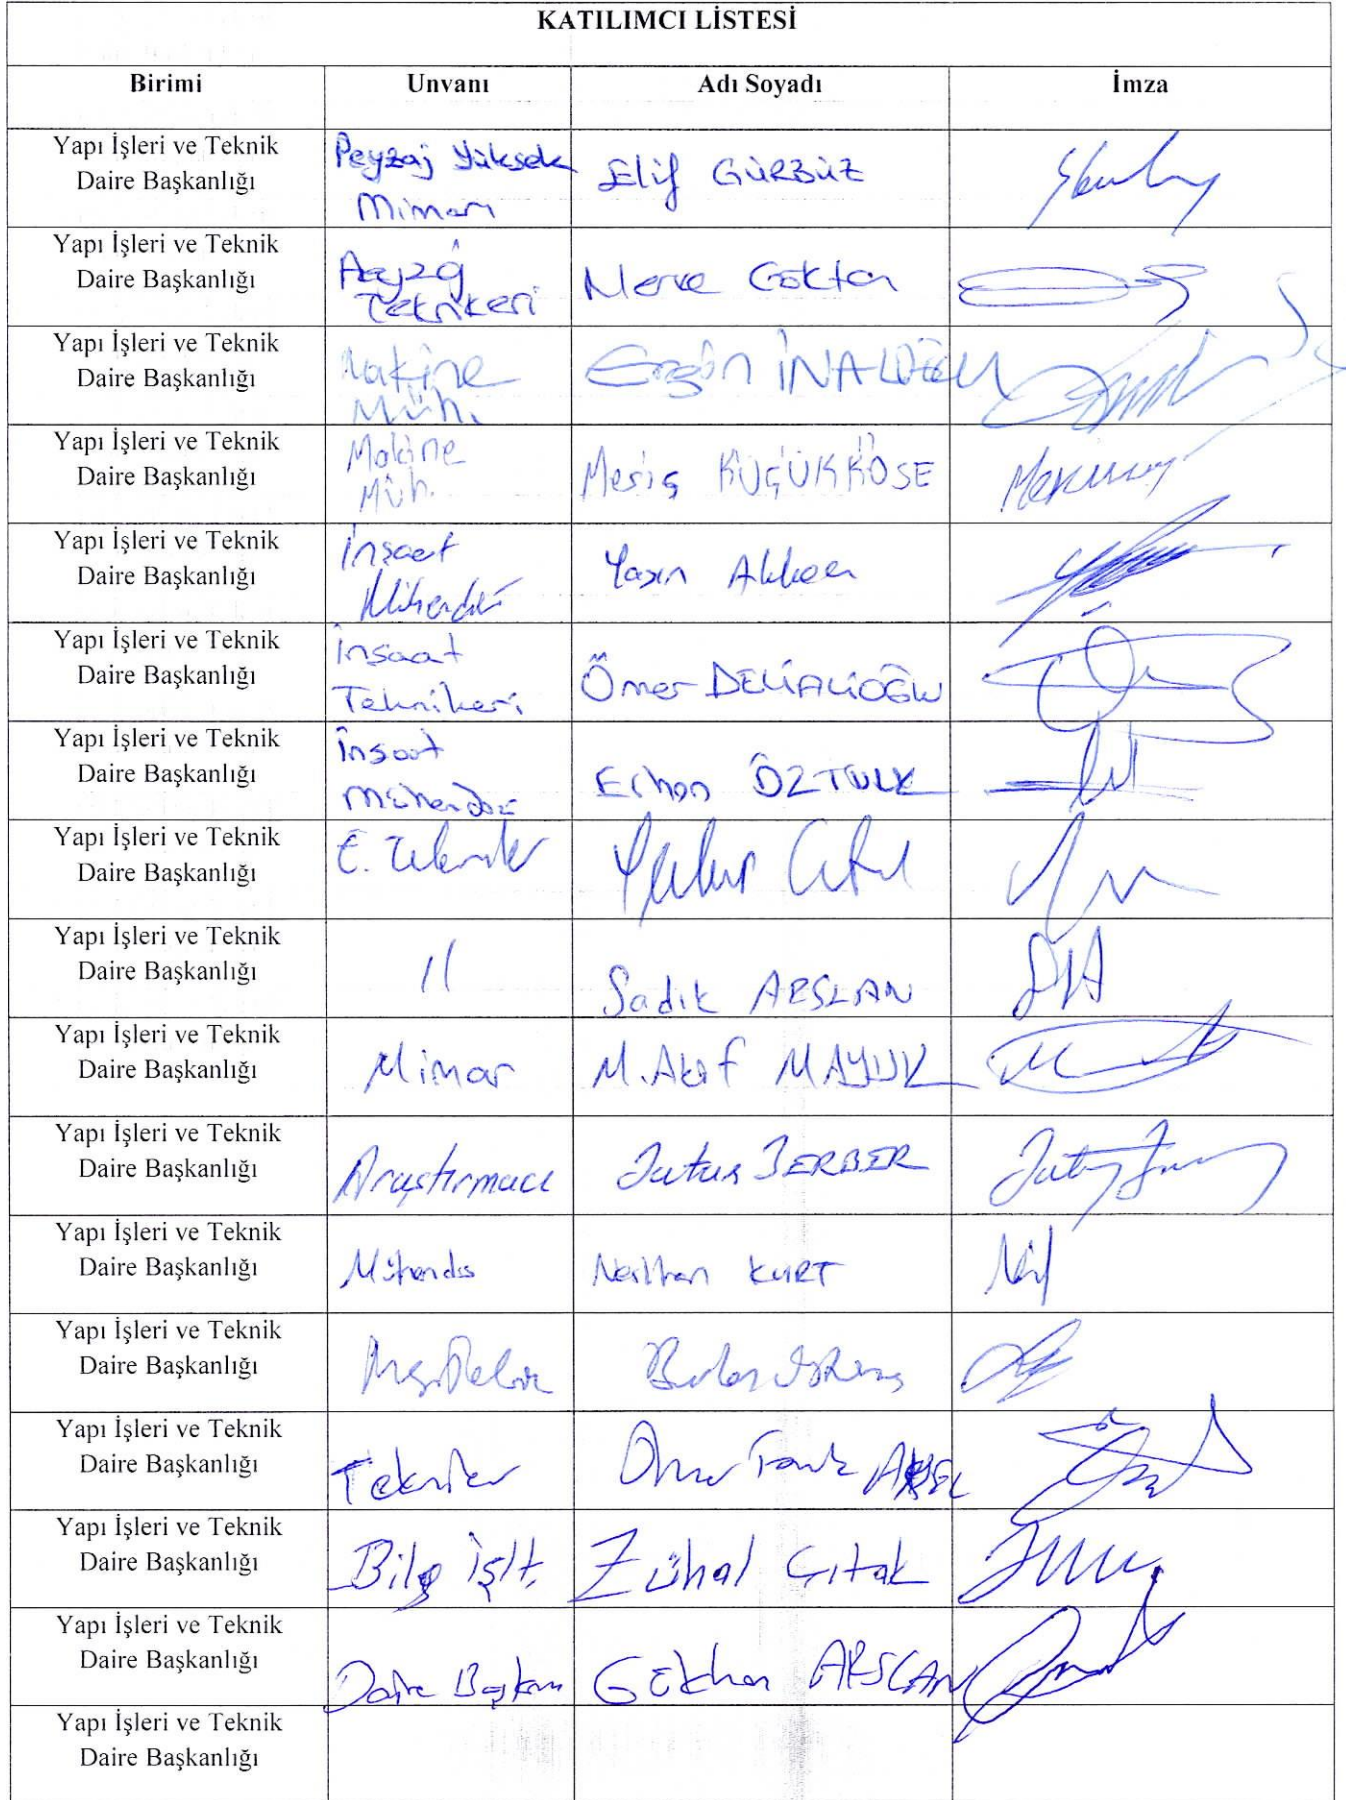 KATILIMCI LİSTESİ
Birimi Unvanı Adı Soyadı İmza
Yapı İşleri ve Teknik
Daire Başkanlığı
Peyzaj Yüksek
Mimarı
Elif GÜRBÜZ
Yapı İşleri ve Teknik
Daire Başkanlığı
Peyzaj
Teknikeri
Merve Göktan
Yapı İşleri ve Teknik
Daire Başkanlığı
Makine
Müh.
Ergün İNALOĞLU
Yapı İşleri ve Teknik
Daire Başkanlığı
Makine
Müh.
Meriç KÜÇÜKKÖSE
Yapı İşleri ve Teknik
Daire Başkanlığı
İnşaat
Mühendisi
Yasin
Yapı İşleri ve Teknik
Daire Başkanlığı
İnşaat
Teknikeri
Ömer DELİALİOĞLU
Yapı İşleri ve Teknik
Daire Başkanlığı
İnşaat
Mühendisi
Erhan ÖZTÜRK
Yapı İşleri ve Teknik
Daire Başkanlığı
E. Tekniker
Yapı İşleri ve Teknik
Daire Başkanlığı
11
Sadık ARSLAN
Yapı İşleri ve Teknik
Daire Başkanlığı
Mimar
M. Akif MAYUK
Yapı İşleri ve Teknik
Daire Başkanlığı
Araştırmacı
BERBER
Yapı İşleri ve Teknik
Daire Başkanlığı
Mühendis
KURT
Yapı İşleri ve Teknik
Daire Başkanlığı
Yapı İşleri ve Teknik
Daire Başkanlığı
Tekniker
Ömer Faruk
Yapı İşleri ve Teknik
Daire Başkanlığı
Bilg İşlt.
Zühal Çıtak
Yapı İşleri ve Teknik
Daire Başkanlığı
Daire Başkanı
Gökhan ARSLAN
Yapı İşleri ve Teknik
Daire Başkanlığı